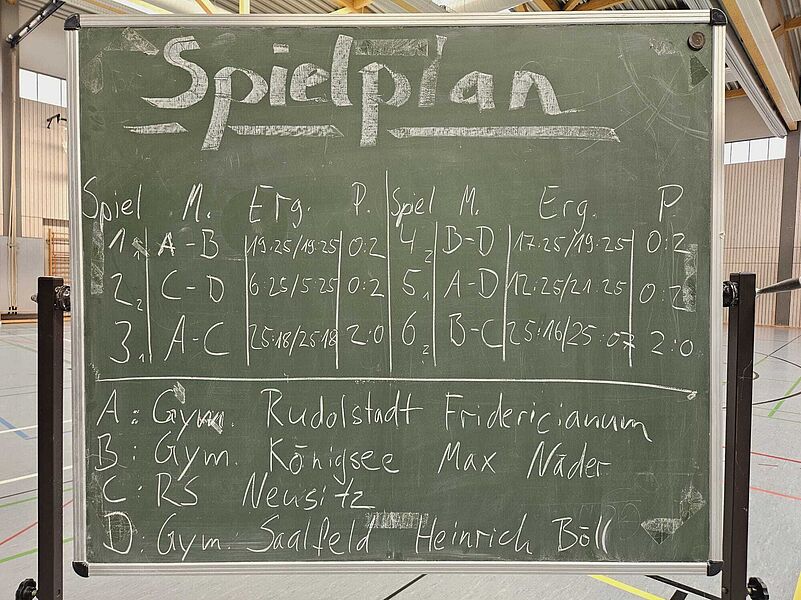 Spielplan
Spiel M. Erg. P. Spiel M. Erg. P.
1 1 A-B 19:25/19:25 0:2 4 2 B-D 17:25/19:25 0:2
2 2 C-D 6:25/5:25 0:2 5 1 A-D 12:25/21:25 0:2
3 1 A-C 25:18/25:18 2:0 6 2 B-C 25:16/25:07 2:0
A: Gym. Rudolstadt Fridericianum
B: Gym. Königsee Max Näder
C: RS Neusitz
D: Gym. Saalfeld Heinrich Böll